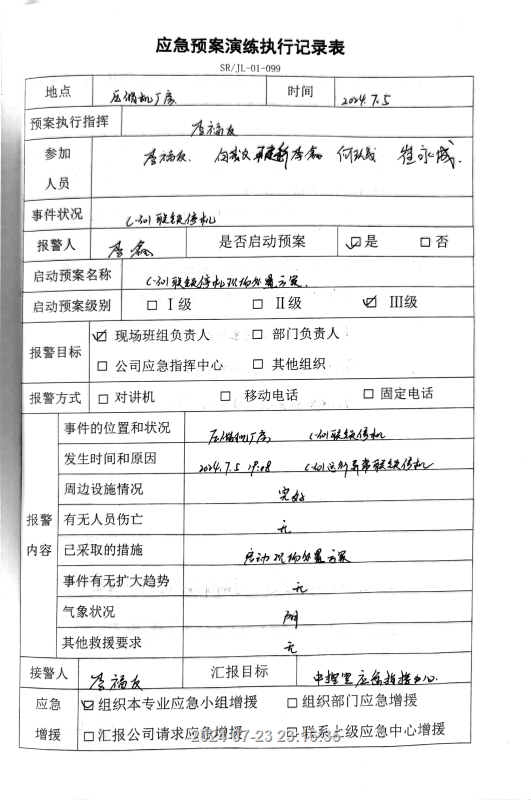 应急预案演练执行记录表
SR/JL-01-099
地点 压缩机厂房 时间 2024.7.5
预案执行指挥 李福友
参加人员 李福友. 李鑫 崔永成.
事件状况 C-301联锁停机
报警人 李鑫 是否启动预案 ☑是 □否
启动预案名称 C-301联锁停机现场处置方案.
启动预案级别 □Ⅰ级 □Ⅱ级 ☑Ⅲ级
报警目标 ☑现场班组负责人 □部门负责人
□公司应急指挥中心 □其他组织
报警方式 □对讲机 □移动电话 □固定电话
报警内容
事件的位置和状况 压缩机厂房 C-301联锁停机
发生时间和原因 2024.7.5 C-301运行异常联锁停机
周边设施情况 完好
有无人员伤亡 无
已采取的措施 启动现场处置方案
事件有无扩大趋势 无
气象状况 阴
其他救援要求 无
接警人 李福友 汇报目标 中控室应急指挥中心.
应急增援 ☑组织本专业应急小组增援 □组织部门应急增援
□汇报公司请求应急增援 □联系上级应急中心增援
2024-07-23 23:16:35